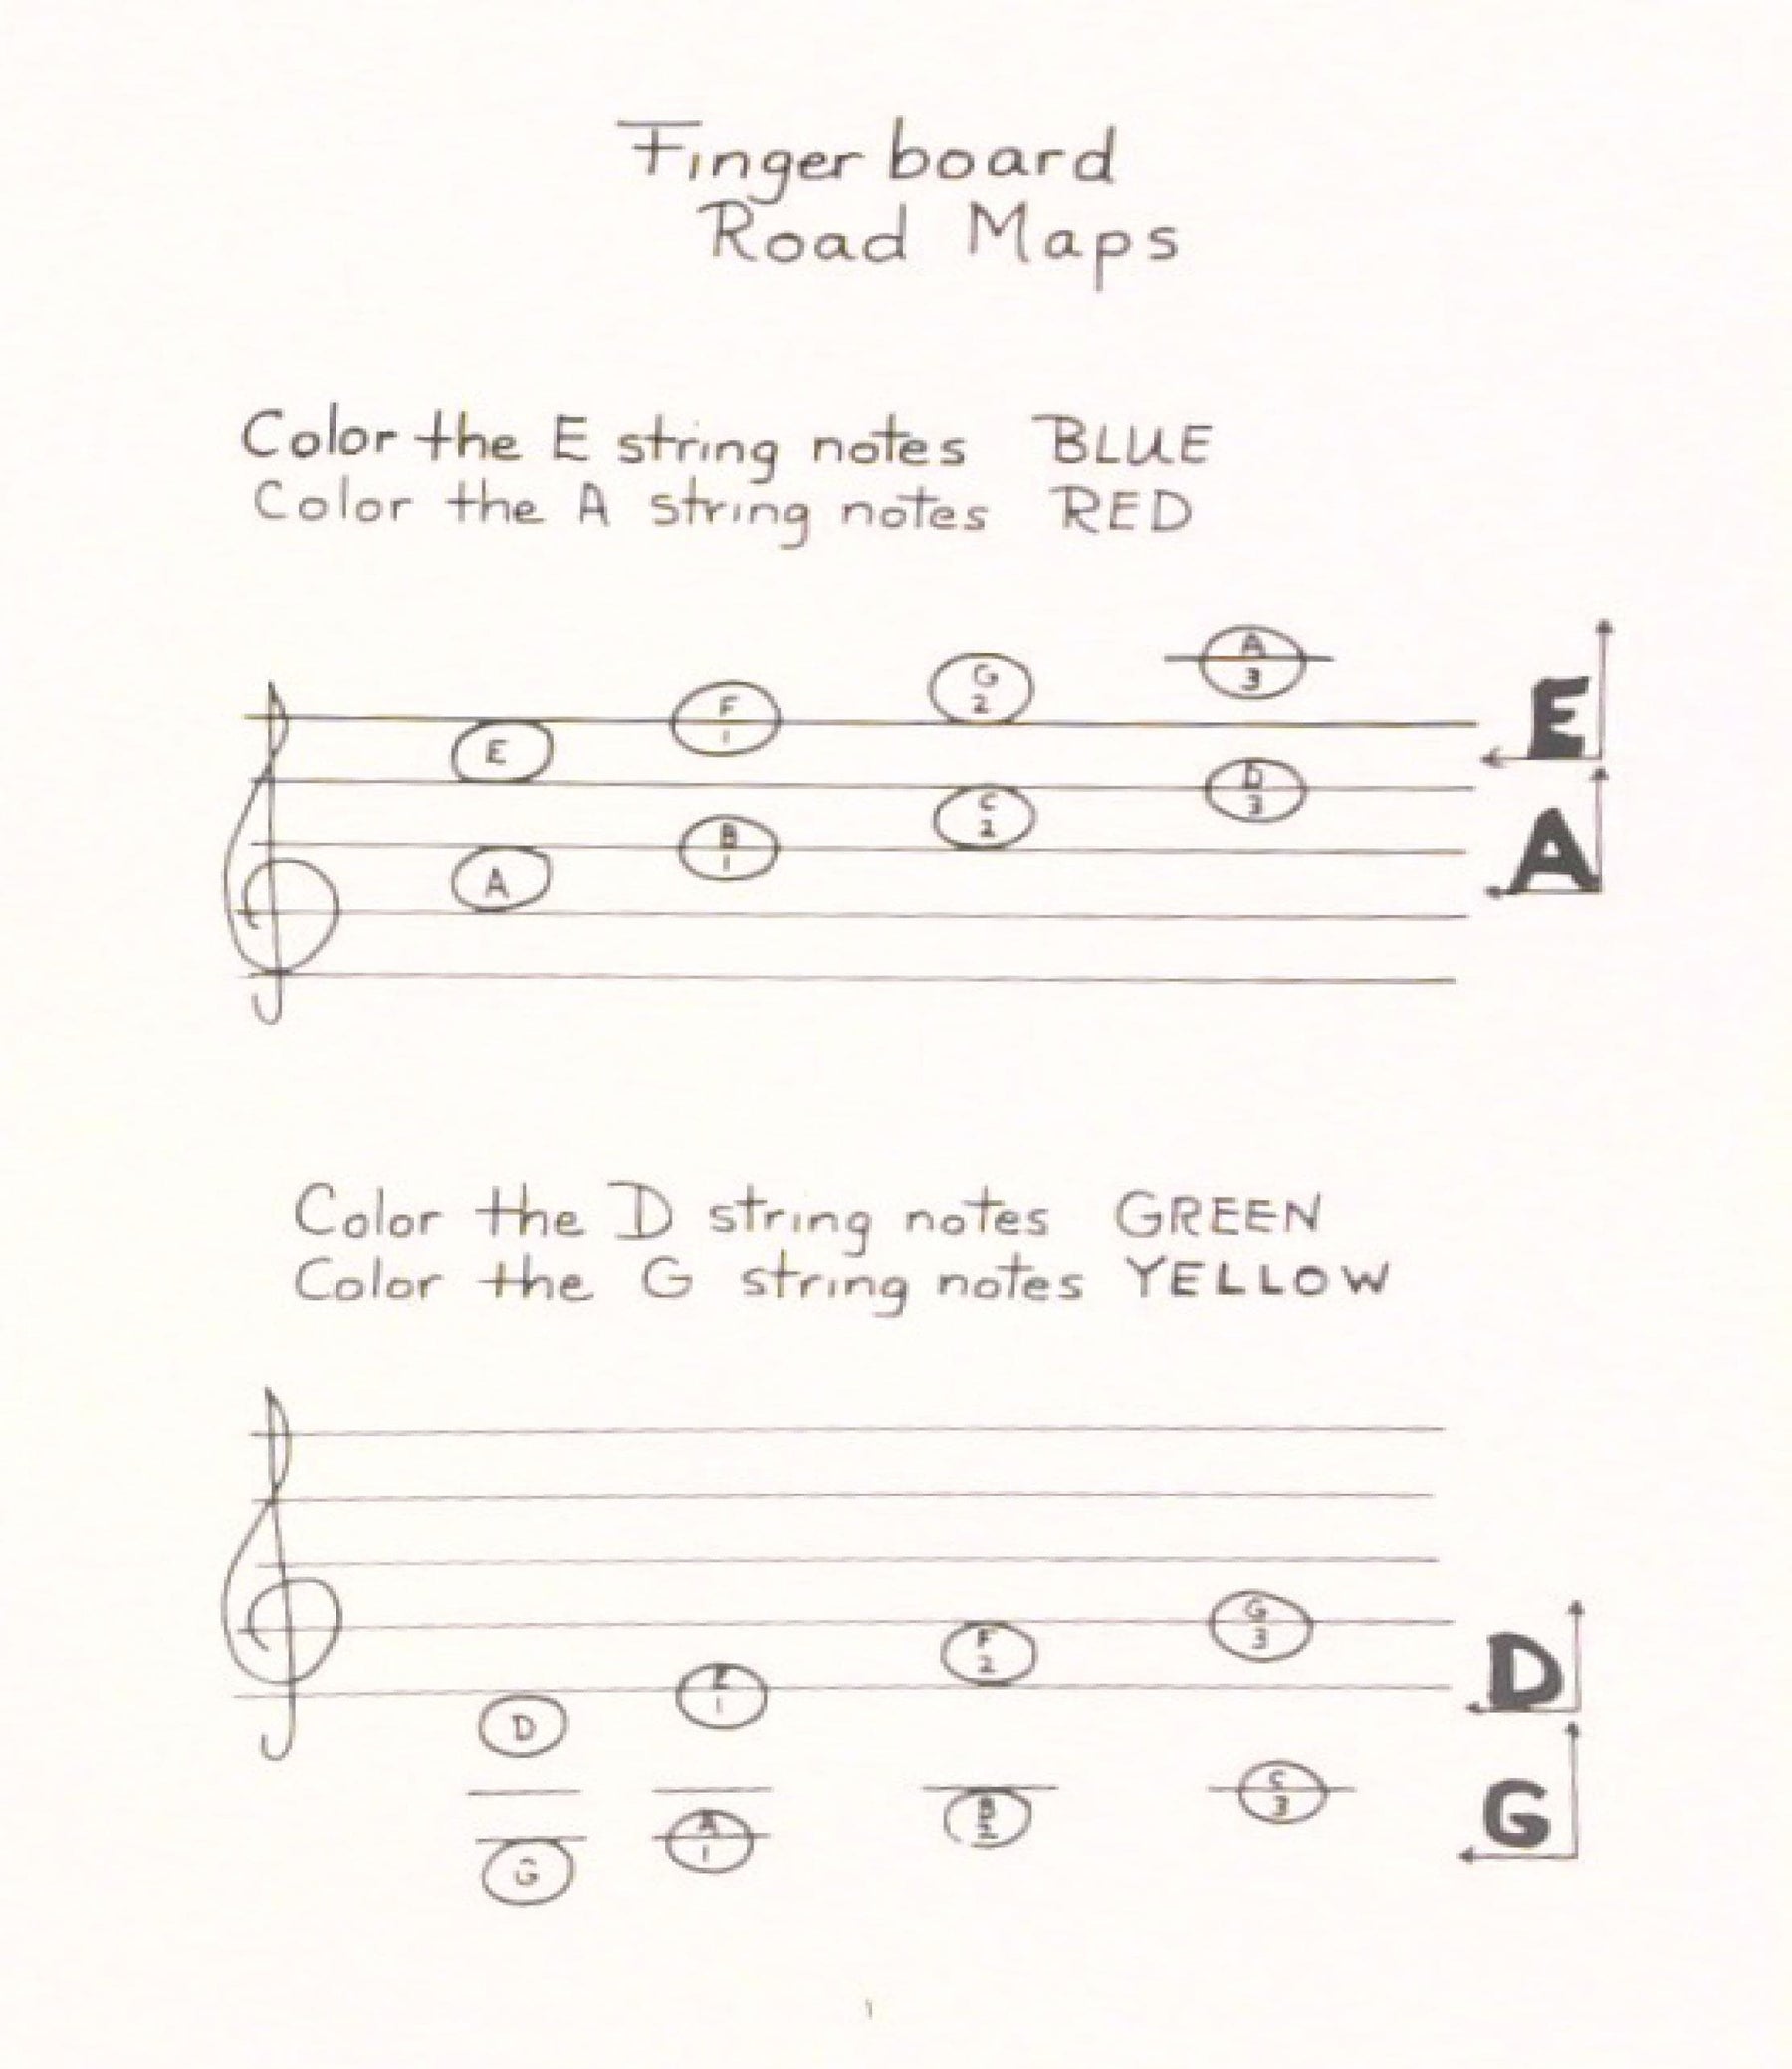 Fingerboard
Road Maps
Color the E string notes BLUE
Color the A string notes RED
A
3
G
2
F
1
E
E
D
3
C
2
B
1
A
A
Color the D string notes GREEN
Color the G string notes YELLOW
G
3
F
2
E
1
D
D
C
3
B
2
A
1
G
G
1